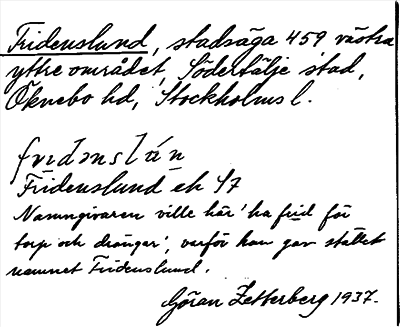 Fridenslund, stadsäga 459 västra
yttre området, Södertälje stad,
Öknebo hd, Stockholms l.
fridənslún
Fridenslund ek 47
Namngivaren ville här 'ha frid för
torp och drängar', varför han gav stället
namnet Fridenslund.
Göran Zetterberg 1937.